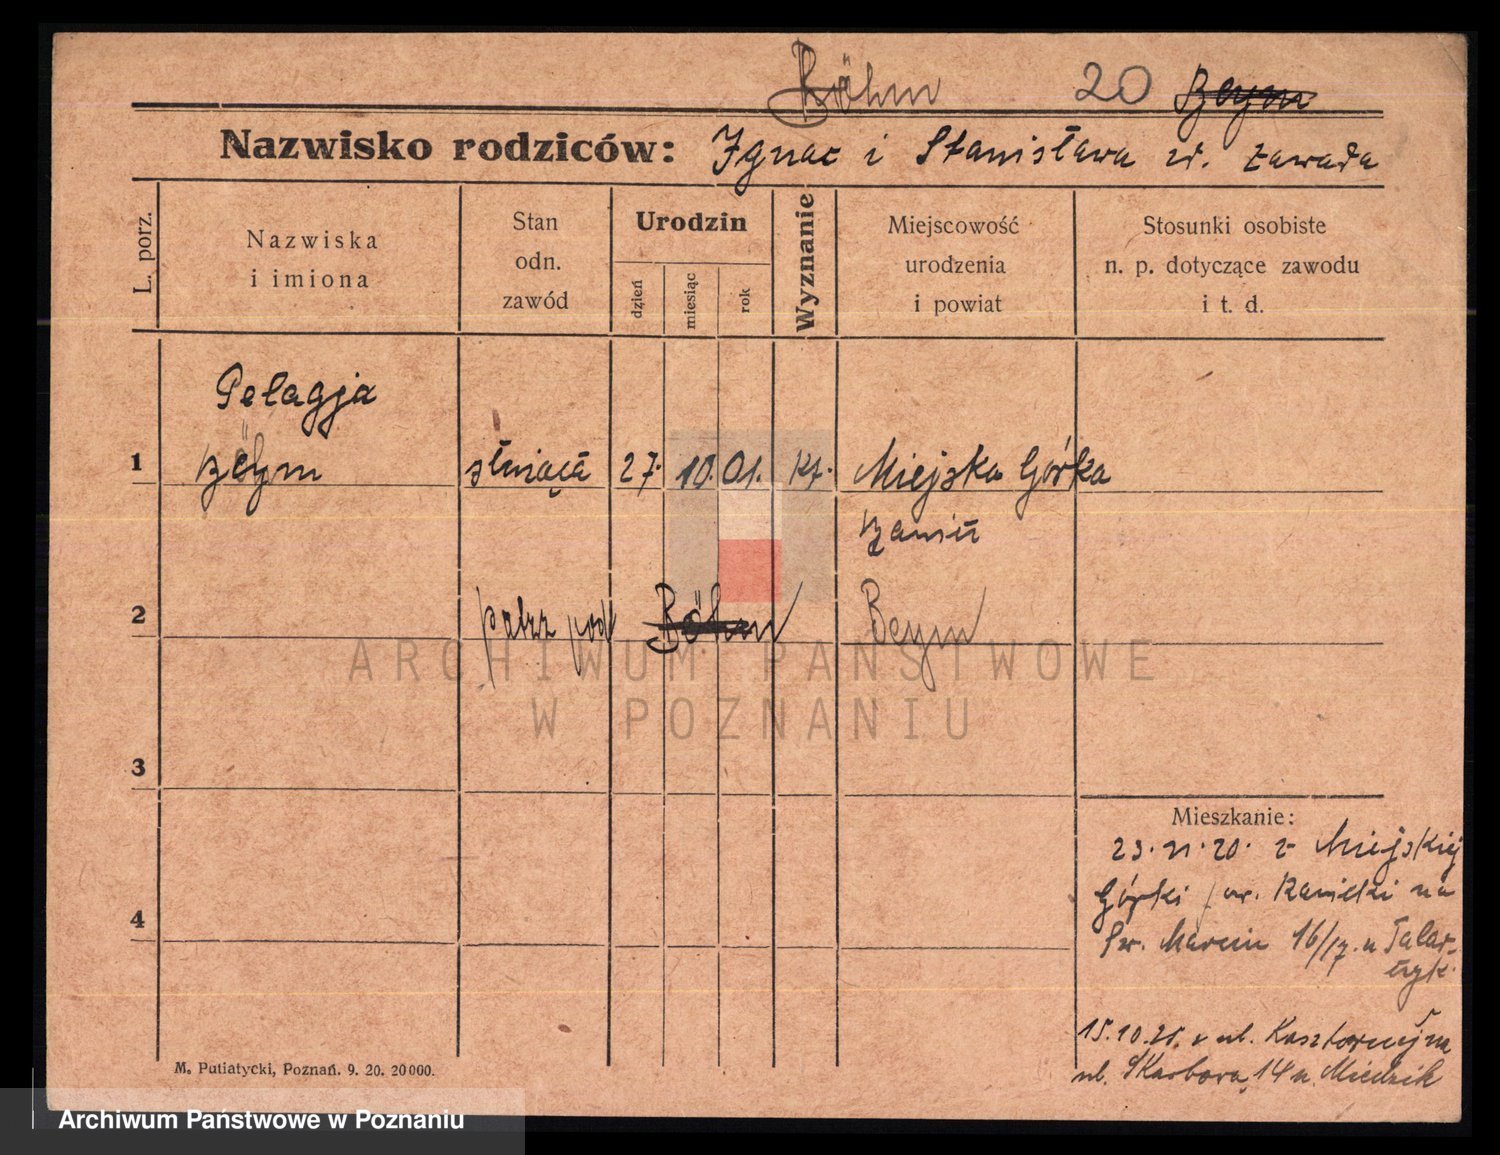 Böhm 20 Beym
Nazwisko rodziców: Ignac i Stanisława zd. Zawada
L. porz.
Nazwiska
i imiona
Stan
odn.
zawód
Urodzin
dzień
miesiąc
rok
Wyznanie
Miejscowość
urodzenia
i powiat
Stosunki osobiste
n. p. dotyczące zawodu
i t. d.
Pelagja
1 służąca 27. 10. 01. kt. Miejska Górka
2 patrz pod Böhm Beym
3
4
Mieszkanie:
23. 11. 20. z Miejskiej
Górki pow. Rawicki na
Św. Marcin 16/17. u Talar-
czyk.
15. 10. 21. z ul.
ul. Skarbową 14 u. Miedzik
M. Putiatycki, Poznań. 9. 20. 20000.
ARCHIWUM PAŃSTWOWE
W POZNANIU
Archiwum Państwowe w Poznaniu